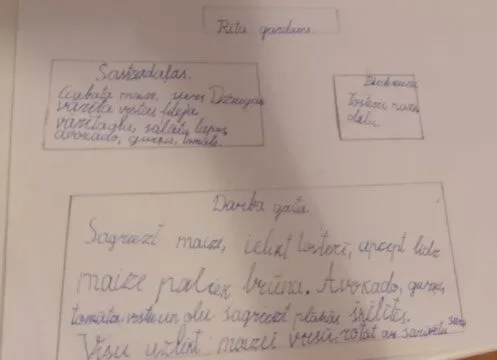 Rīta gardums.
Sastāvdaļas.
Ciabata maize, siers Džiugas
vārīta vistas fileja
vārīta ola, salātu lapas,
avokado, gurķis, tomāts.
Tosteris, nazis
dēlis.
Darba gaita.
Sagriezt maizi, ielikt tosterī, apcept līdz
maize paliek brūna. Avokado, gurķi,
tomātu, vistu un olu sagriezt plānās šķēlītēs.
Visu uzlikt maizei virsū, rotāt ar salātu